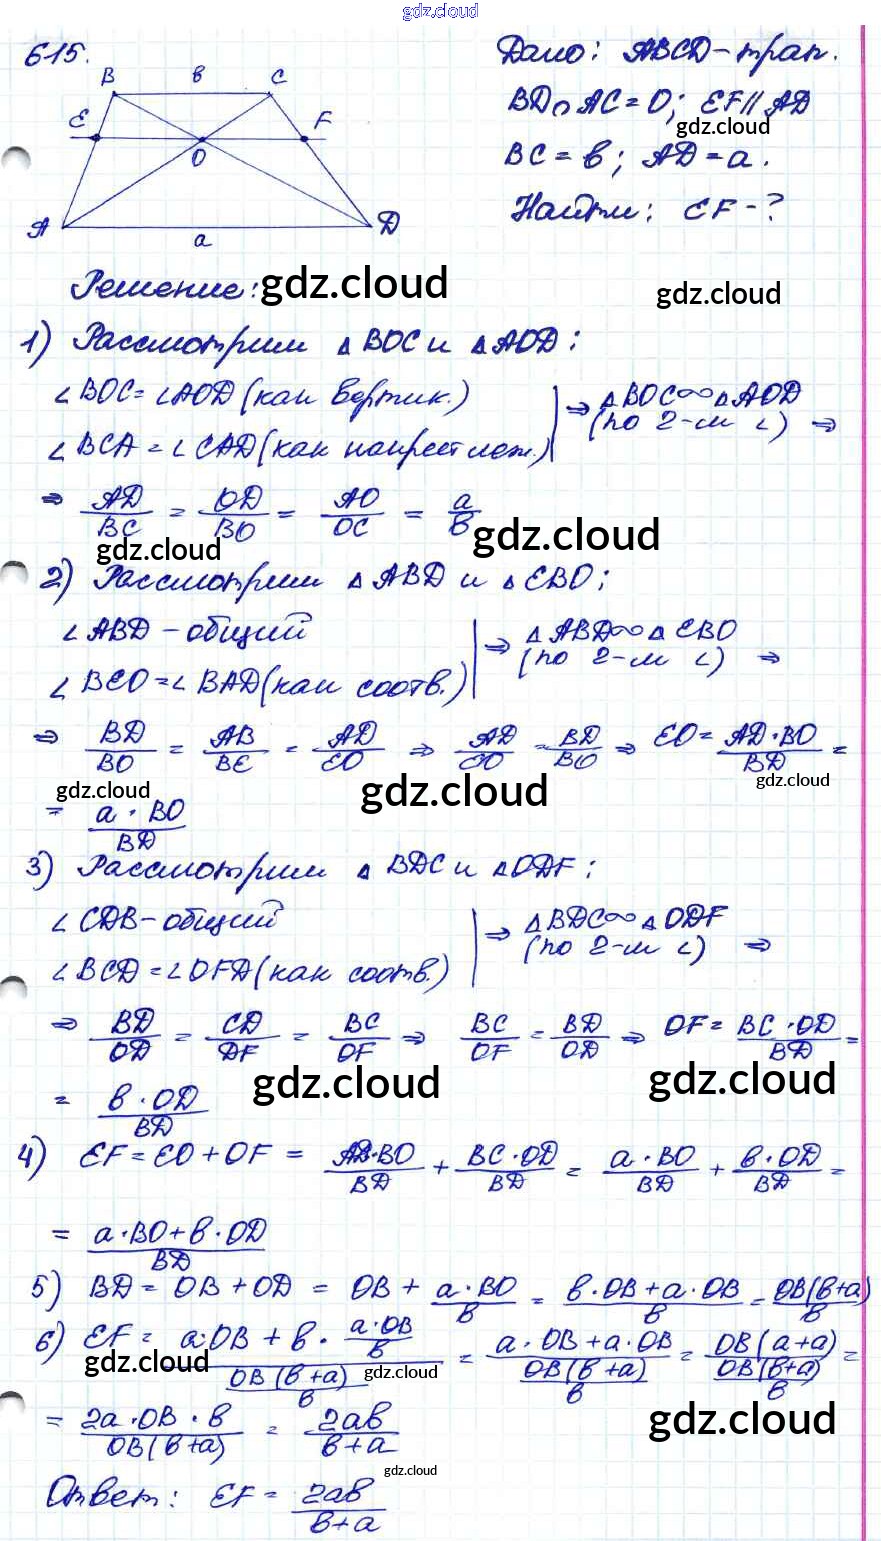 gdz.cloud
615.
B в C
E F
O
A а D
Дано: ABCD - трап.
BD ∩ AC = O; EF || AD
gdz.cloud
BC = в; AD = а.
Найти: EF - ?
Решение: gdz.cloud gdz.cloud
1) Рассмотрим △ BOC и △ AOD:
∠ BOC = ∠ AOD (как вертик.) | ⇒ △ BOC ∞ △ AOD
∠ BCA = ∠ CAD (как накрест леж.) | (по 2-м ∠) ⇒
⇒ AD/BC = OD/BO = AO/OC = а/в
gdz.cloud gdz.cloud
2) Рассмотрим △ ABD и △ EBO;
∠ ABD - общий | ⇒ △ ABD ∞ △ EBO
∠ BEO = ∠ BAD (как соотв.) | (по 2-м ∠) ⇒
⇒ BD/BO = AB/BE = AD/EO ⇒ AD/EO = BD/BO ⇒ EO = AD · BO/BD =
gdz.cloud gdz.cloud gdz.cloud
= а · BO/BD
3) Рассмотрим △ BDC и △ ODF:
∠ CDB - общий | ⇒ △ BDC ∞ △ ODF
∠ BCD = ∠ OFD (как соотв.) | (по 2-м ∠) ⇒
⇒ BD/OD = CD/DF = BC/OF ⇒ BC/OF = BD/OD ⇒ OF = BC · OD/BD =
gdz.cloud gdz.cloud
= в · OD/BD
4) EF = EO + OF = AD · BO/BD + BC · OD/BD = а · BO/BD + в · OD/BD =
= а · BO + в · OD/BD
5) BD = OB + OD = OB + а · BO/в = в · OB + а · OB/в = OB (в + а)/в
6) EF = (а · OB + в · а · OB/в)/(OB (в + а)/в) = (а · OB + а · OB)/(OB (в + а)/в) = (OB (а + а))/(OB (в + а)/в) =
gdz.cloud gdz.cloud
= 2а · OB · в/OB (в + а) = 2ав/в + а
gdz.cloud
gdz.cloud
Ответ: EF = 2ав/в + а